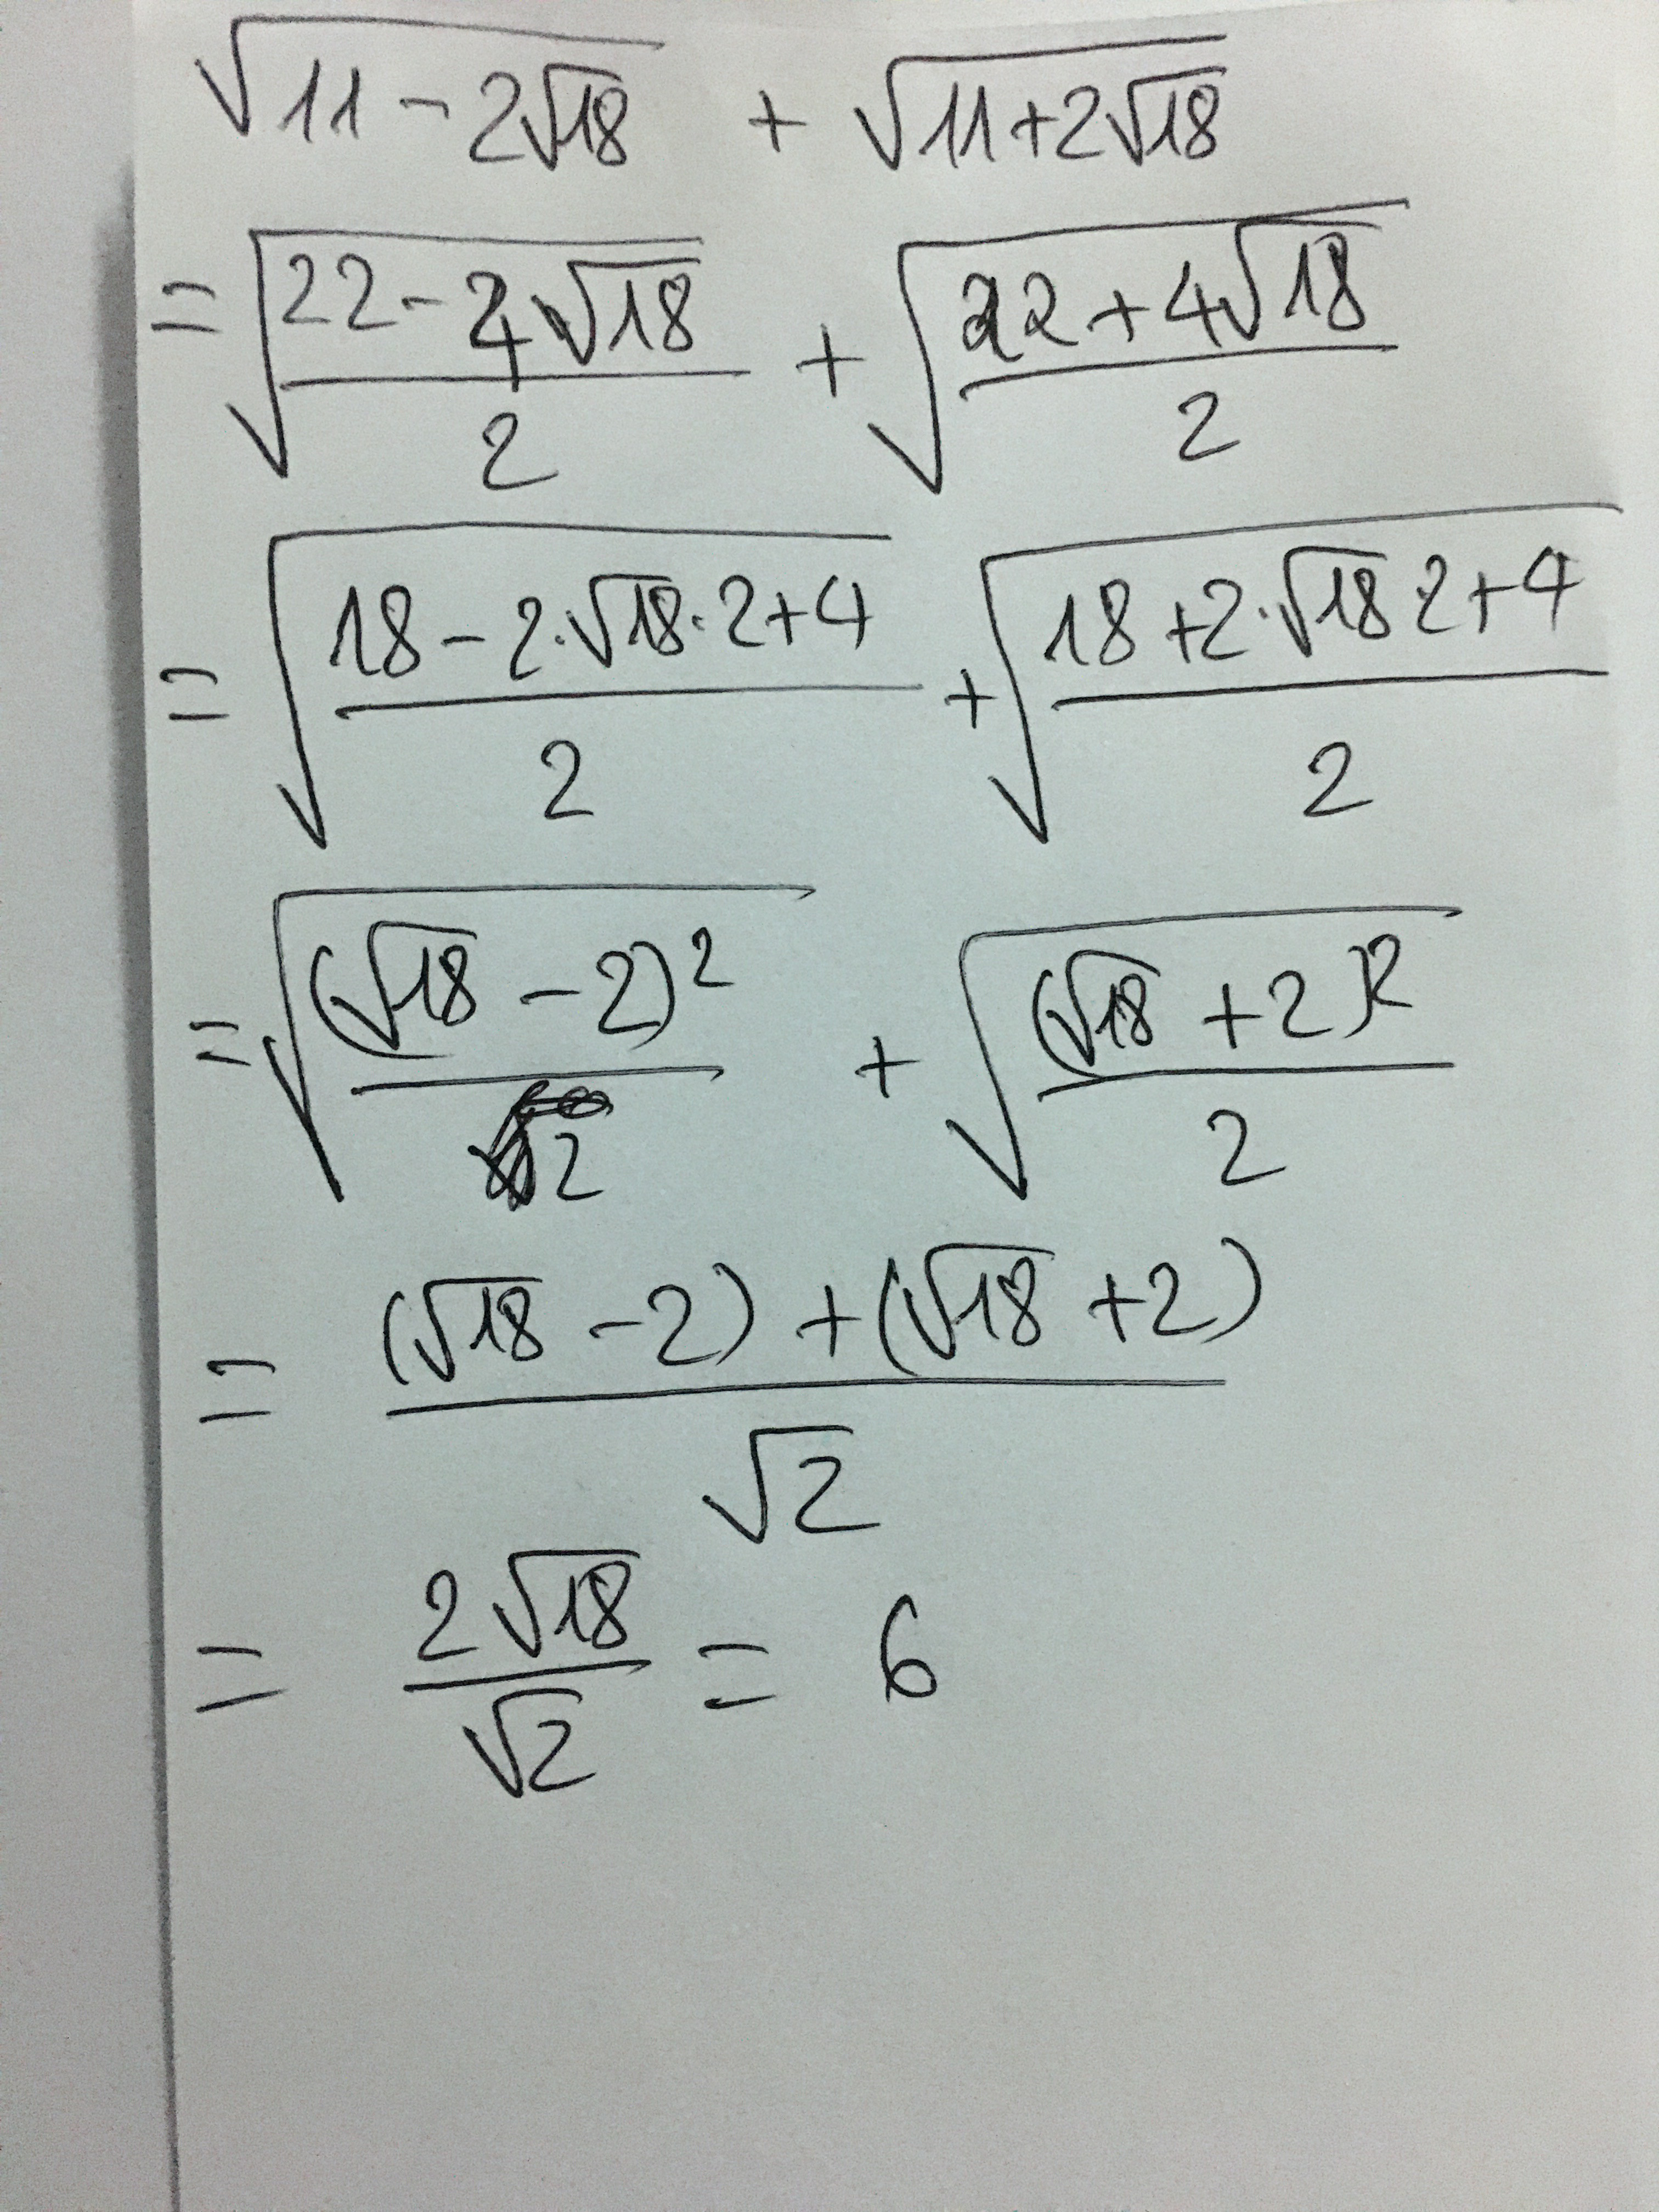 √(11 - 2√18) + √(11 + 2√18)
= √((22 - 4√18)/2) + √((22 + 4√18)/2)
= √((18 - 2·√18·2 + 4)/2) + √((18 + 2·√18 2 + 4)/2)
= √((√18 - 2)²/2) + √((√18 + 2)²/2)
= ((√18 - 2) + (√18 + 2))/√2
= 2√18/√2 = 6